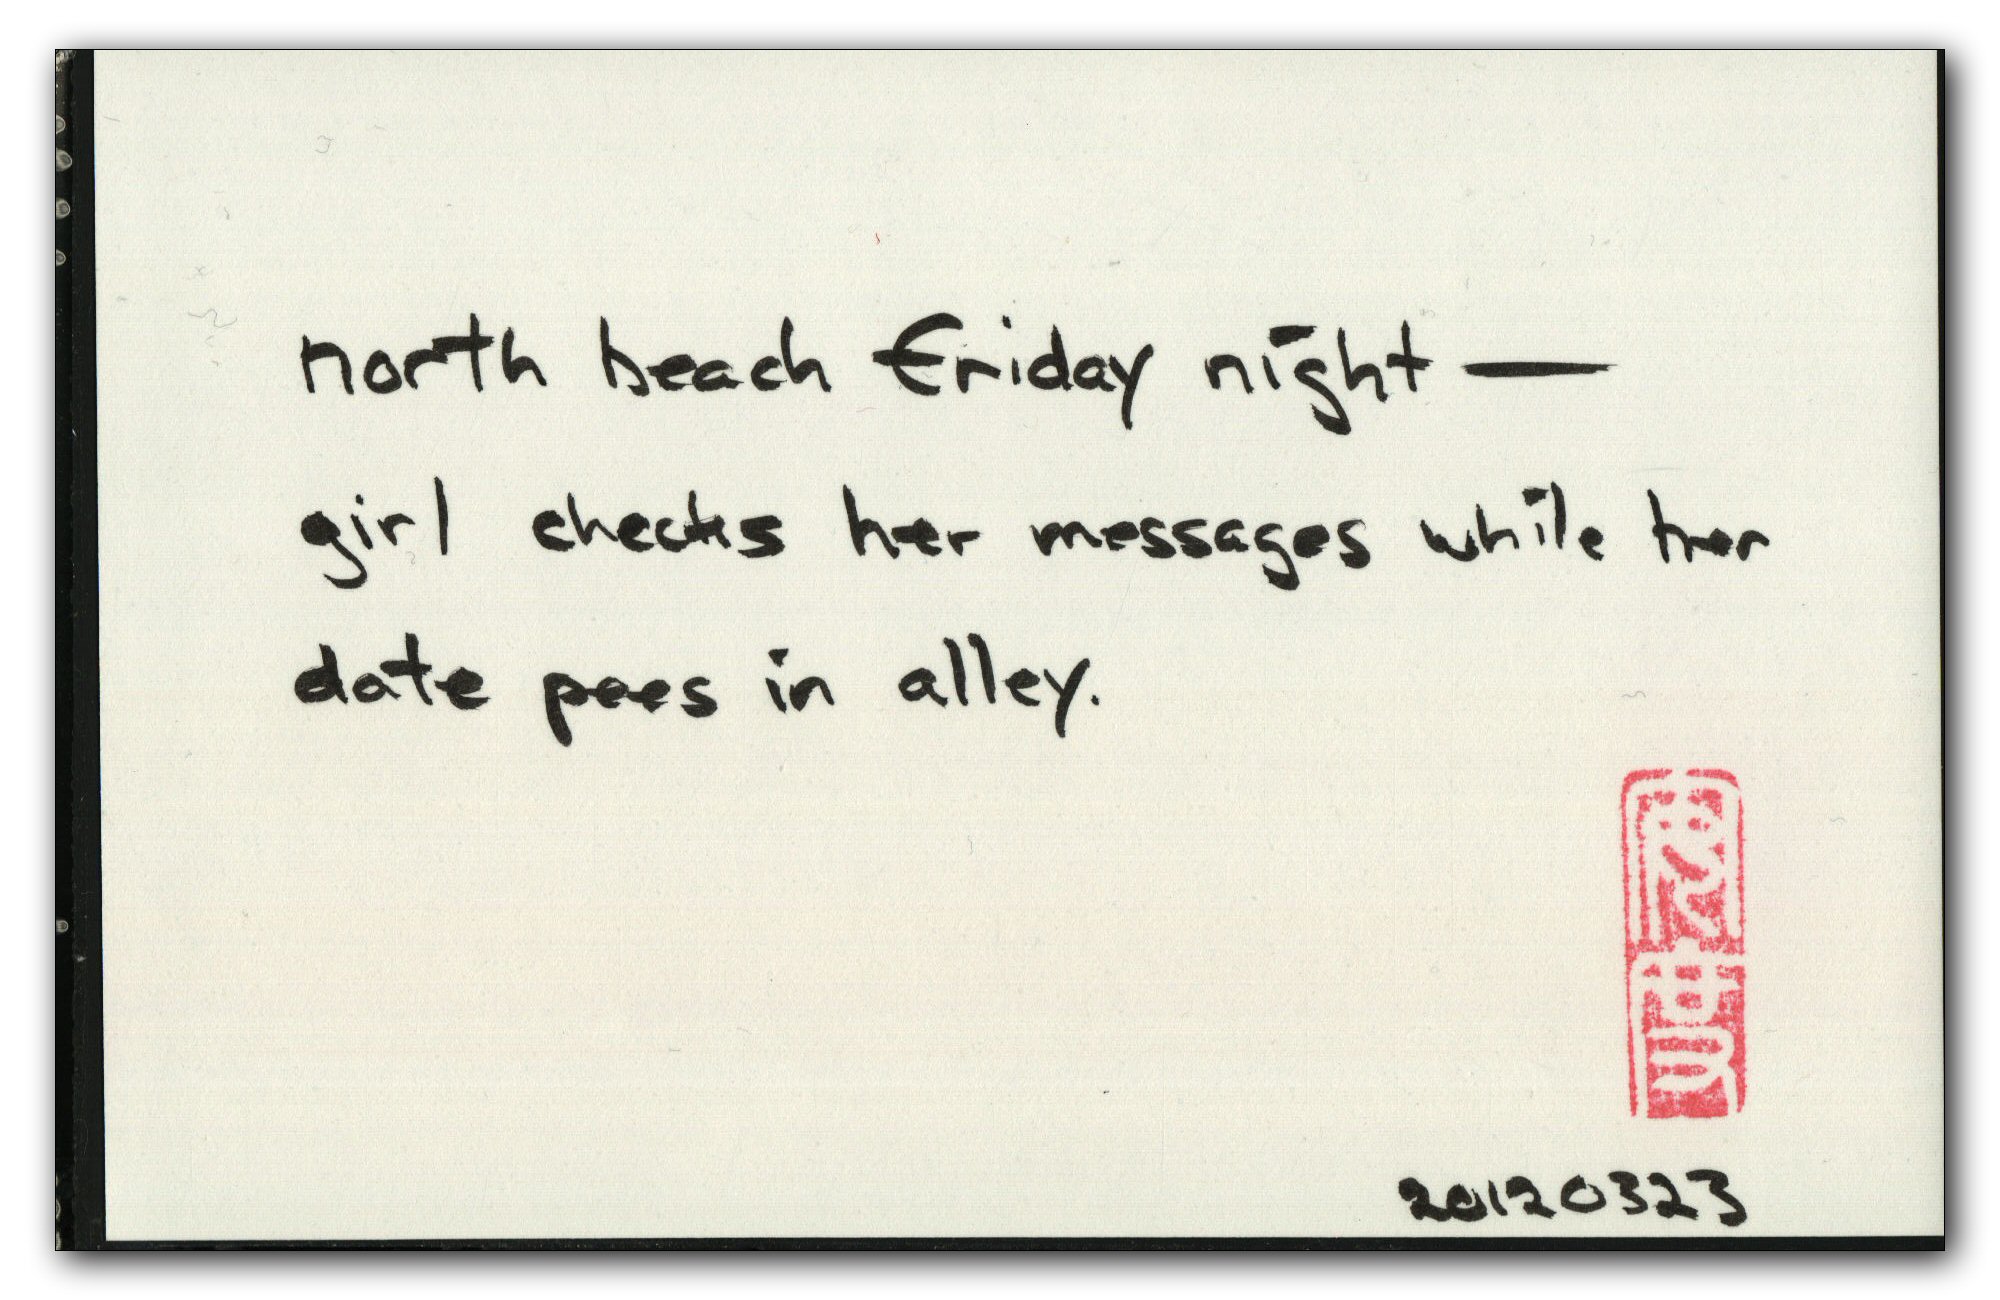 north beach Friday night—
girl checks her messages while her
date pees in alley.
20120323